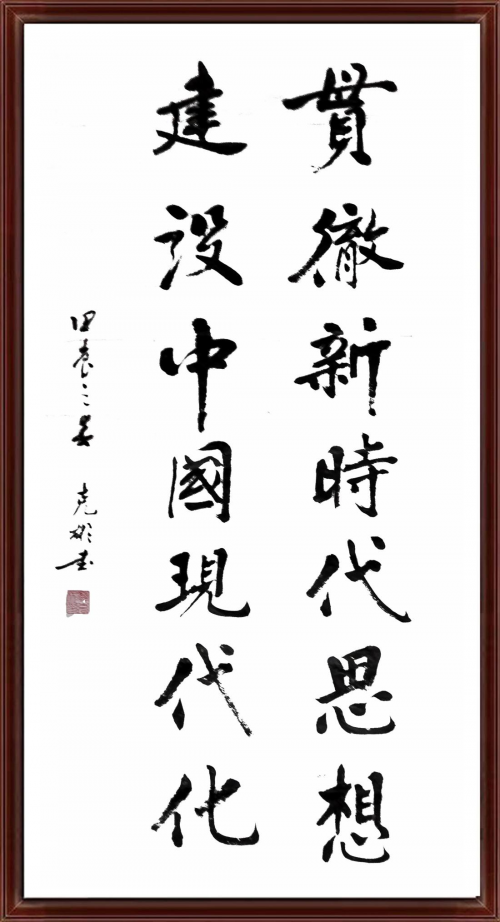 貫徹新時代思想
建设中國現代化
甲辰之春 克彬书